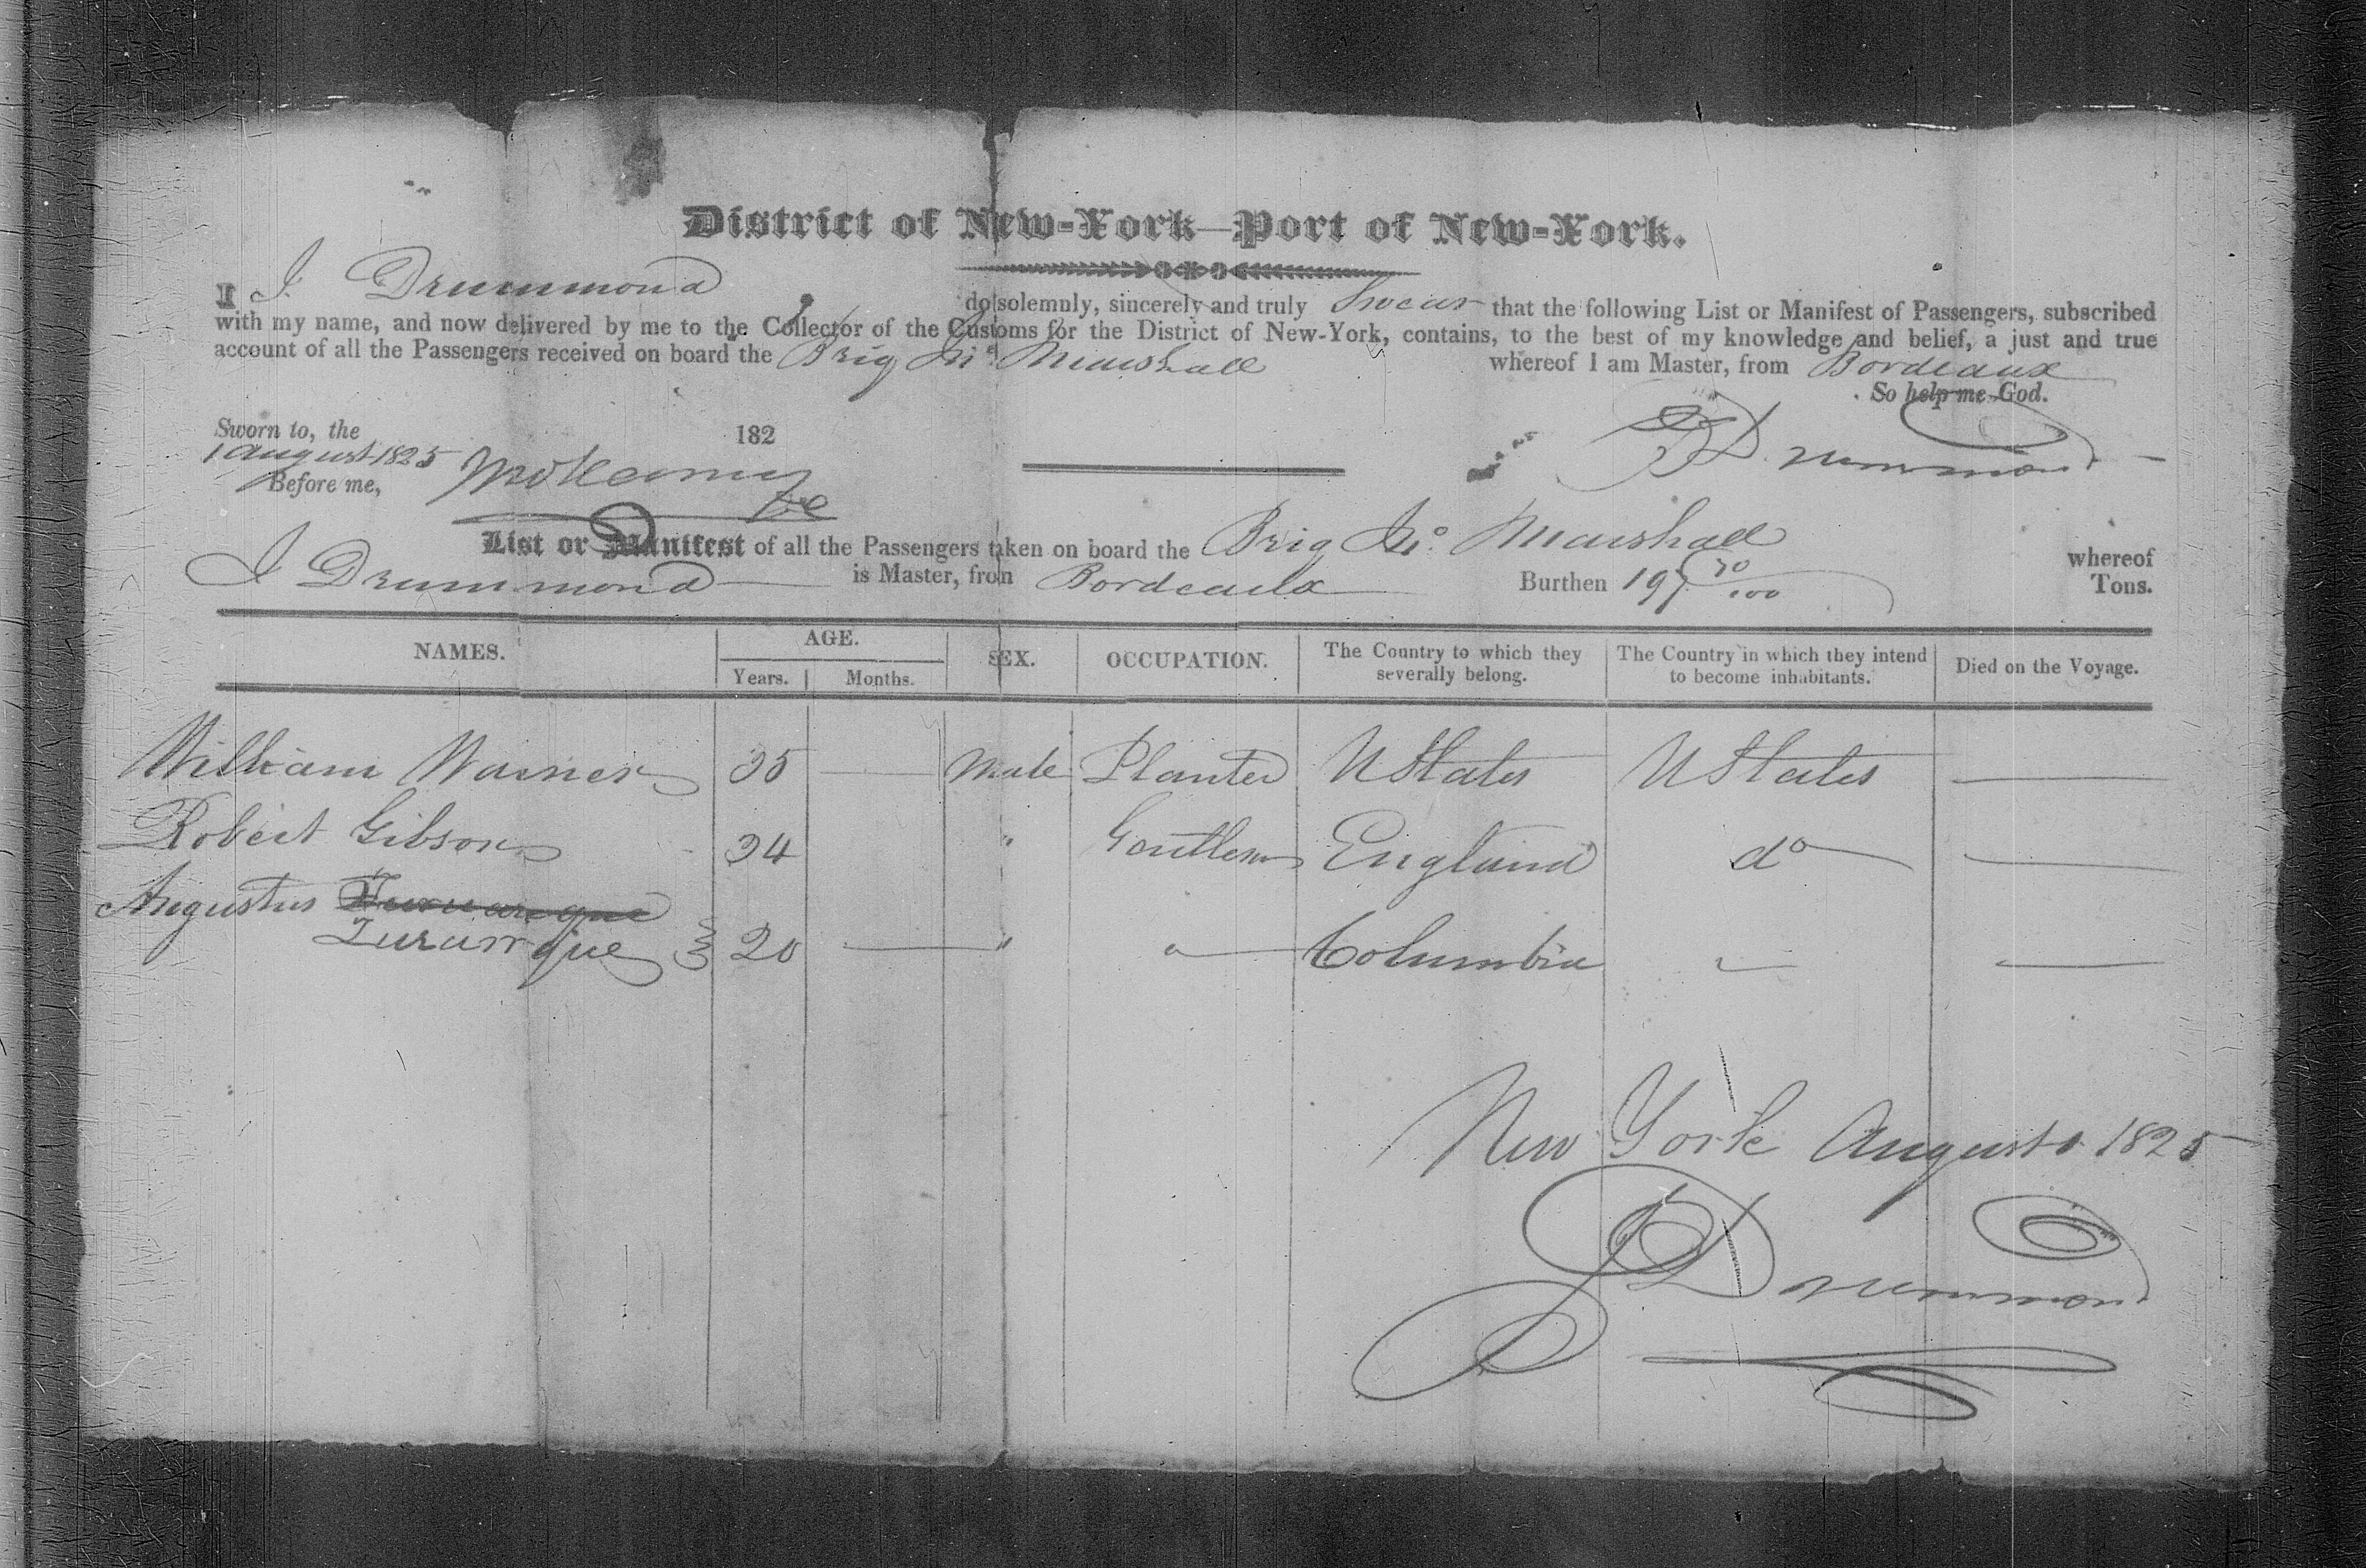 District of New-York—Port of New-York.
I J. Drummond do solemnly, sincerely and truly Swear that the following List or Manifest of Passengers, subscribed
with my name, and now delivered by me to the Collector of the Customs for the District of New-York, contains, to the best of my knowledge and belief, a just and true
account of all the Passengers received on board the Brig Jno. Marshall whereof I am Master, from Bordeaux
So help me God.
Sworn to, the 182
1 August 1825
Before me,
J Drummond
List or Manifest of all the Passengers taken on board the Brig Jno. Marshall whereof
J Drummond is Master, from Bordeaux Burthen 197 70/100 Tons.
NAMES. AGE. SEX. OCCUPATION. The Country to which they severally belong. The Country in which they intend to become inhabitants. Died on the Voyage.
Years. Months.
William Warner 35 — Male Planter U States U States —
Robert Gibson 34 " Gentleman England do —
Augustus
20 — " " Columbia " —
New York August 1 1825
J Drummond